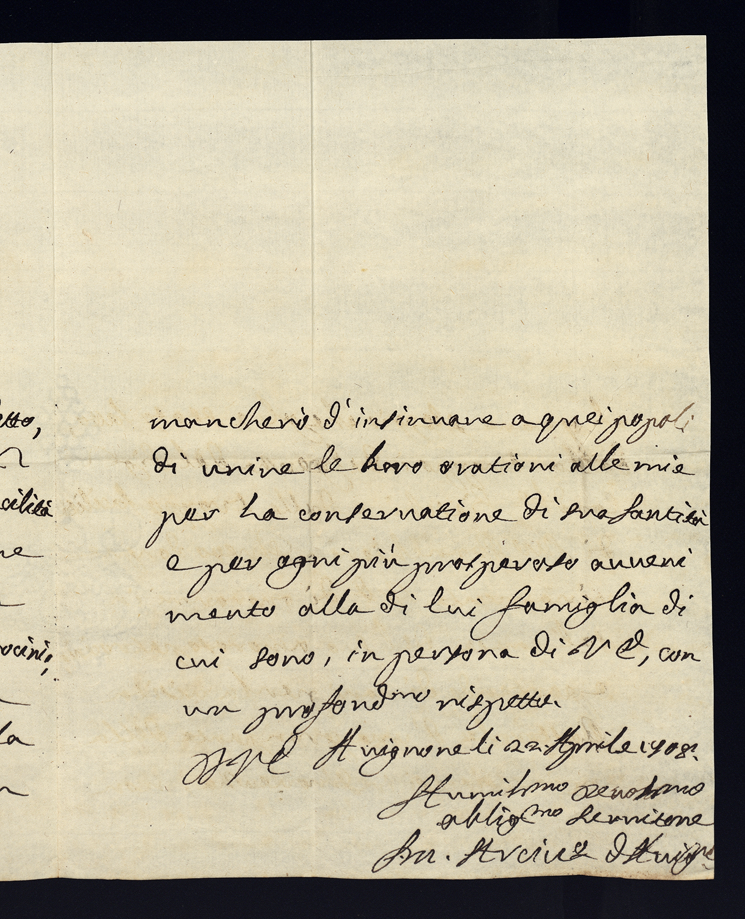 etto,
cilità
ne
rocini,
la
mancherò d'insinuare a quei popoli
di unire le loro orationi alle mie
per la conservatione di sua santità
e per ogni più prosperoso avveni
mento alla di lui famiglia di
cui sono, in persona di V E, con
un profondmo rispetto.
D V E Avignone li 22 Aprile 1708.
Humilmo devotmo
obbligmo servitore
Arciv d'Avigne